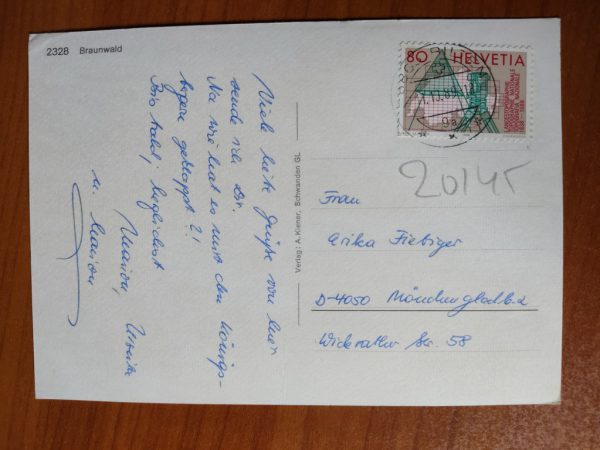 2328 Braunwald
Viele liebe Grüße von hier
sende ich Dir.
Na wie hat es mit den Königs-
geklappt?!
Bis bald, herzlichst
Marion,
u. Marion
Verlag: A. Kiener, Schwanden GL
80 HELVETIA
20145
Frau
Erika Fiebiger
D-4050 Mönchengladb. 2
Wickrather Str. 58